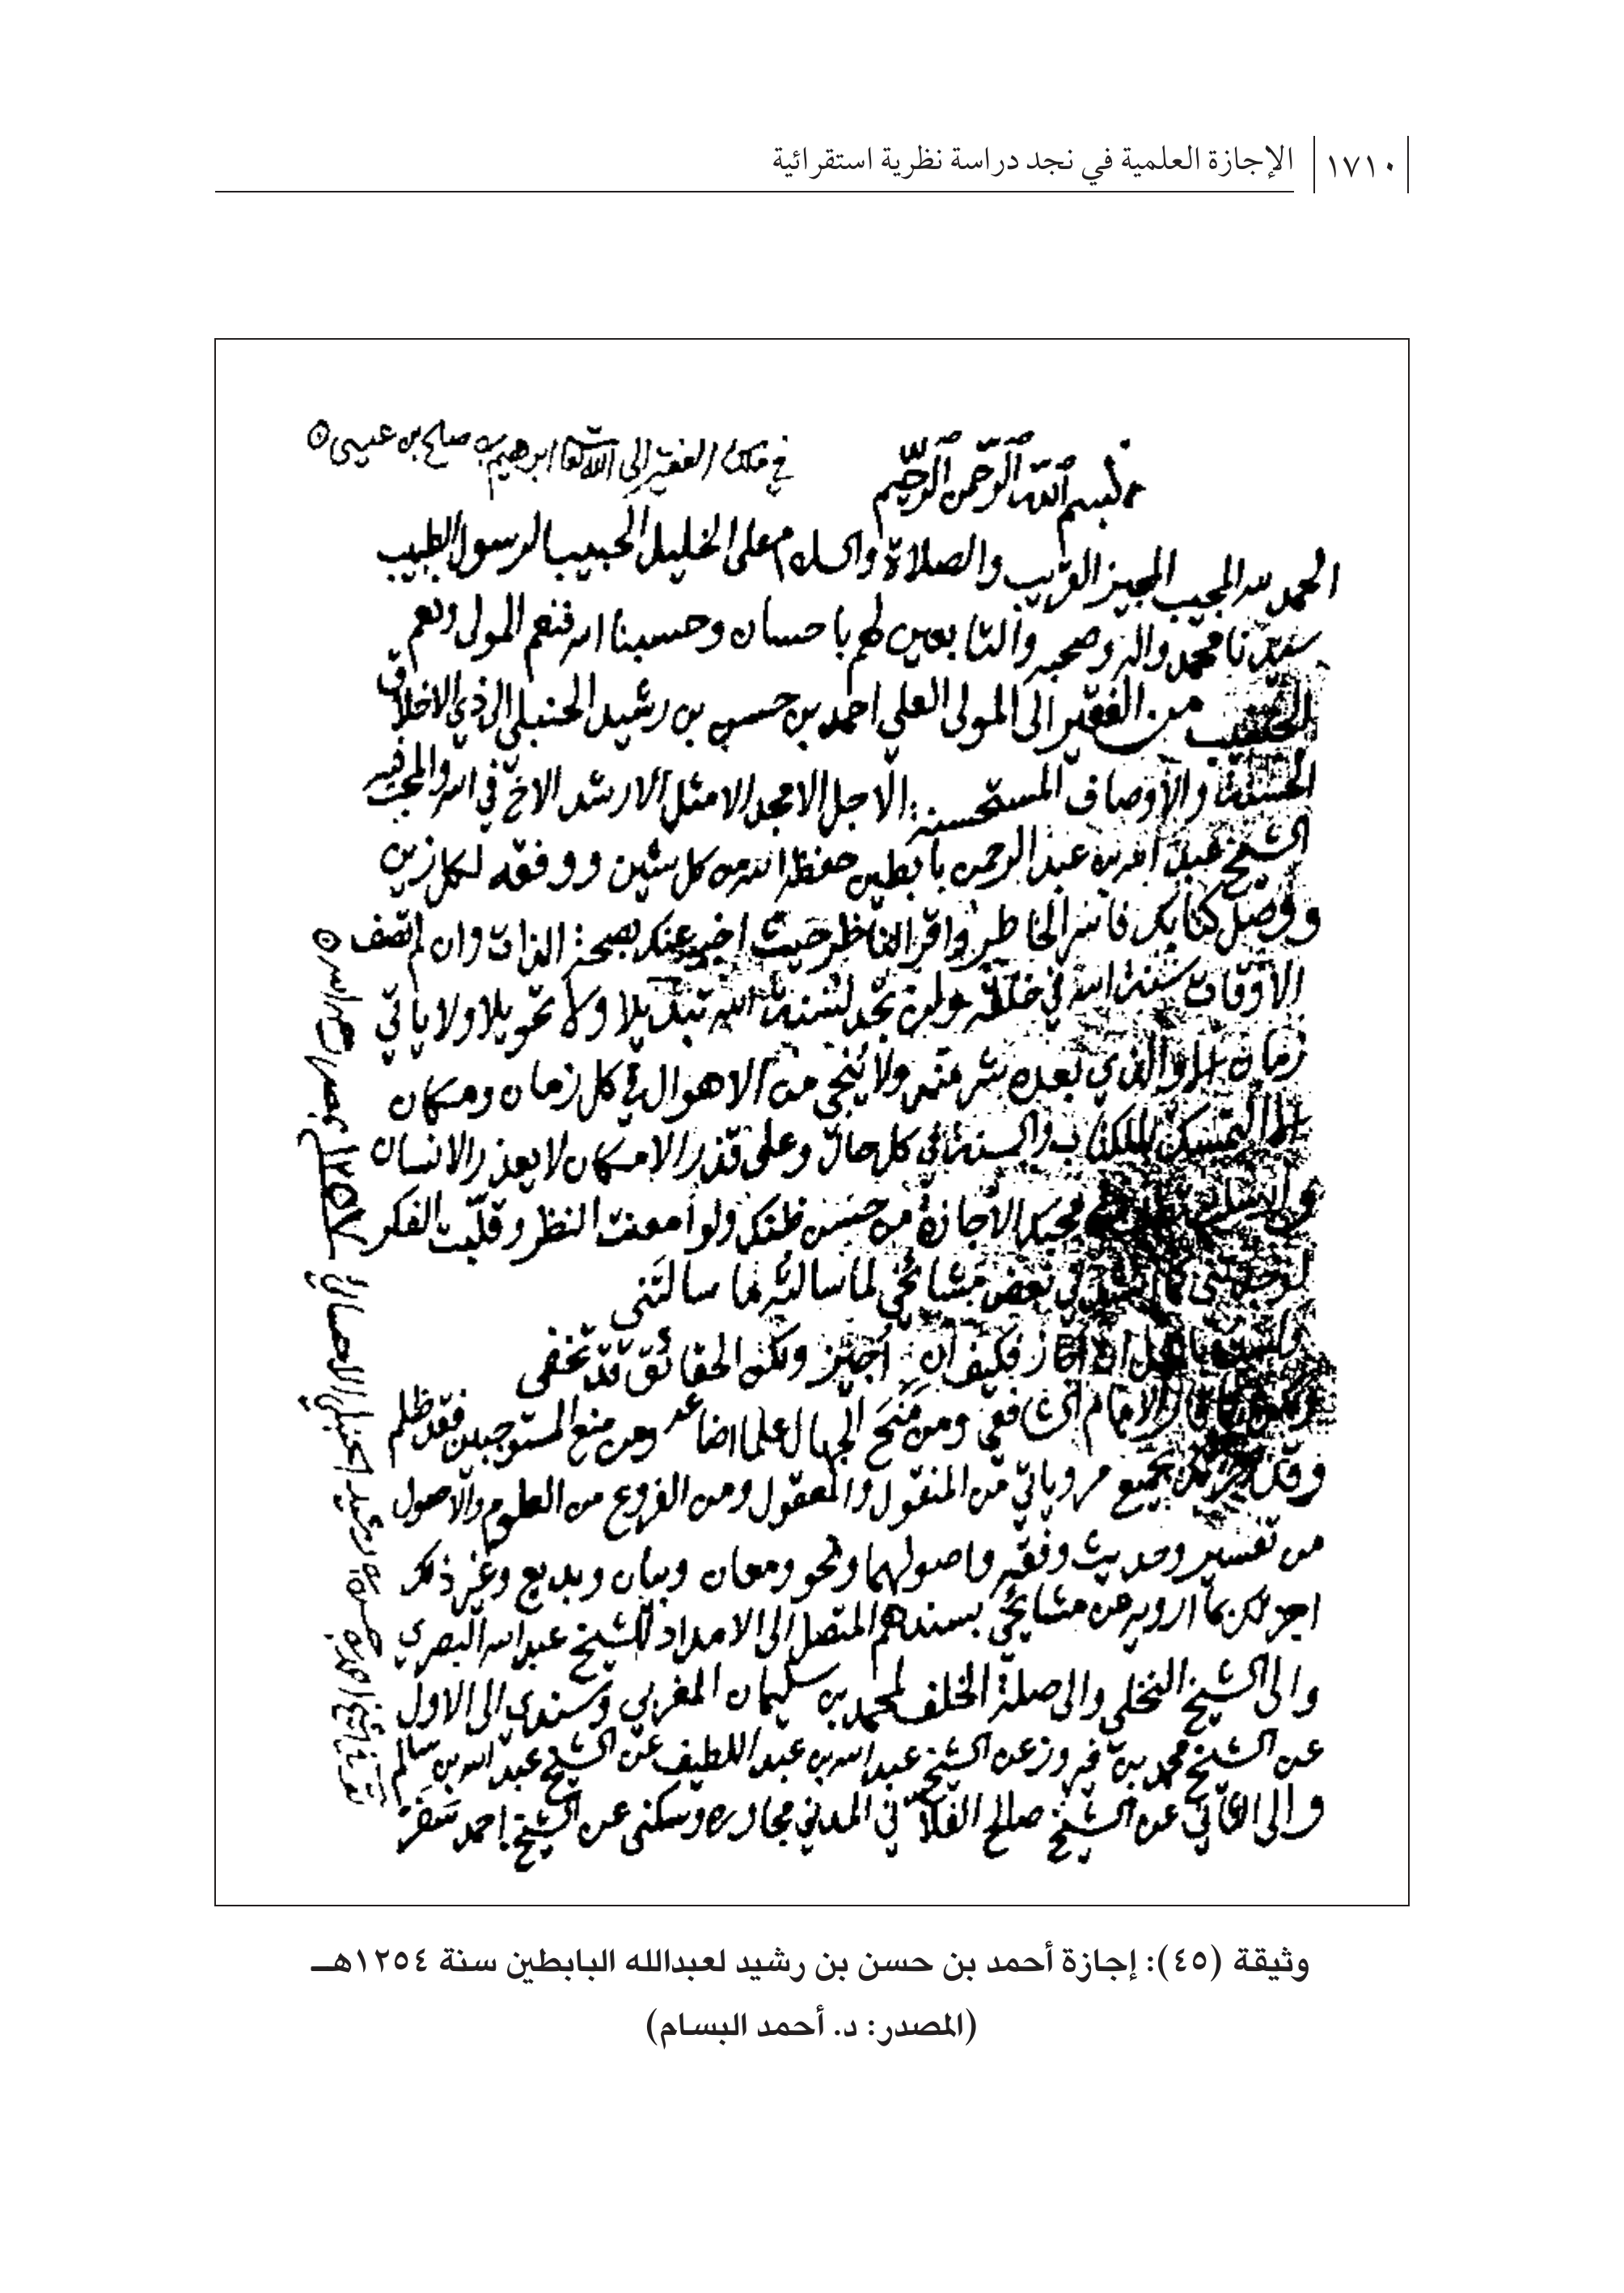 ١٧١٠ الإجازة العلمية في نجد دراسة نظرية استقرائية
في ملك الفقير إلى الله تعالى ابرهيم بن صلح بن عيسى
بسم الله الرحمن الرحيم
الحمد لله المجيب المجيز القريب والصلاة والسلام على الخليل الحبيب الرسول الطبيب
سيدنا محمد واله وصحبه والتابعين لهم باحسان وحسبنا الله فنعم المولى ونعم
الحسيب من الفقير الى المولى العلي احمد بن حسن بن رشيد الحنبلي الى ذي الاخلاق
الحسنة والأوصاف المستحسنة الاجل الامجد الامثل الارشد الاخ في الله والمحب فيه
الشيخ عبد الله بن عبد الرحمن بابطين حفظه الله من كل شين ووفقه لكل زين
ووصل كتابكم فاسر الخاطر واقر الناظر حيث اخبر عنكم بصحة الذات وان لم تصف
الأوقات سنة الله في خلقه ولن تجد لسنة الله تبديلا ولا تحويلا ولا ياتي
زمان الا والذي بعده شر منه ولا ينجي من الاهوال في كل زمان ومكان
الا التمسك بالكتاب والسنة في كل حال وعلى قدر الامكان لا يعذر الانسان
الأجازة من حسن ظنك ولو امعنت النظر وقلبت الفكر
لوجدتني كما في بعض مشائخي لما سالته لما سالتني
ولست باهل ان اجاز فكيف ان اجيز ولكن الحقائق قد تخفى
الامام الشافعي ومن منح الجهال علما اضاعه ومن منع المستوجبين فقد ظلم
وقد بجميع مروياتي من المنقول والمعقول ومن الفروع من العلوم والأصول
من تفسير وحديث وفقه واصولهما ونحو ومعان وبيان وبديع وغير ذلك
اجزتكم بما ارويه عن مشائخي بسندهم المتصل الى الامداد للشيخ عبد الله البصري
والى الشيخ النخلي والى صلة الخلف لمحمد بن سليمان المغربي وسندي الى الاول
عن الشيخ محمد بن فيروز عن الشيخ عبد الله بن عبد اللطيف عن الشيخ عبد الله بن سالم
والى الثاني عن الشيخ صالح الفلاني المدني مجاورة وسكنى عن الشيخ احمد سفر
احمد بن رشيد الحنبلي ١٢٥٧
وثيقة (٤٥): إجازة أحمد بن حسن بن رشيد لعبدالله البابطين سنة ١٢٥٤هـ
(المصدر: د. أحمد البسام)